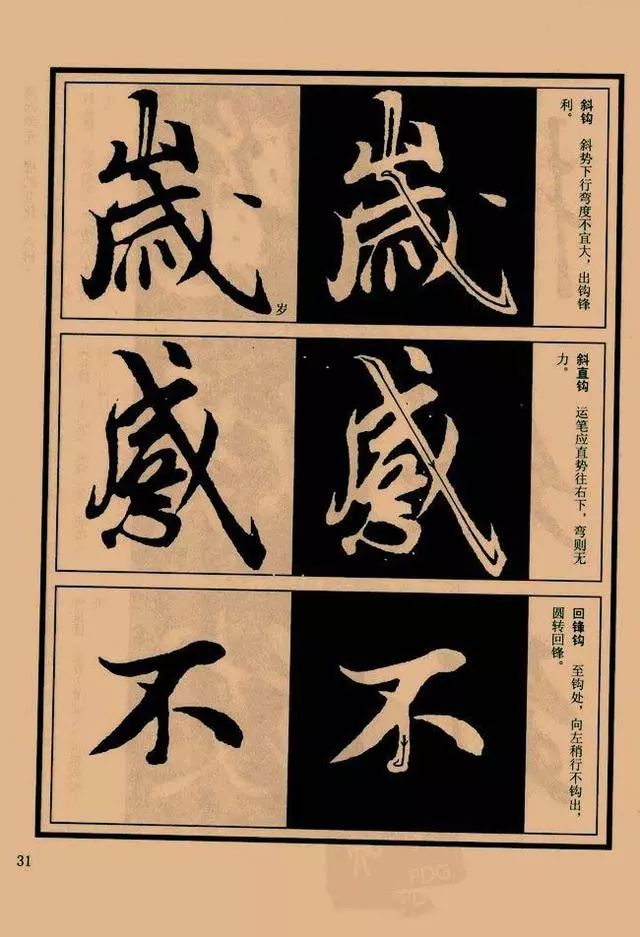 歲
歲
岁
斜钩　斜势下行弯度不宜大，出钩锋
利。
感
感
斜直钩　运笔应直势往右下，弯则无
力。
不
不
回锋钩　至钩处，向左稍行不钩出，
圆转回锋。
31
PDG